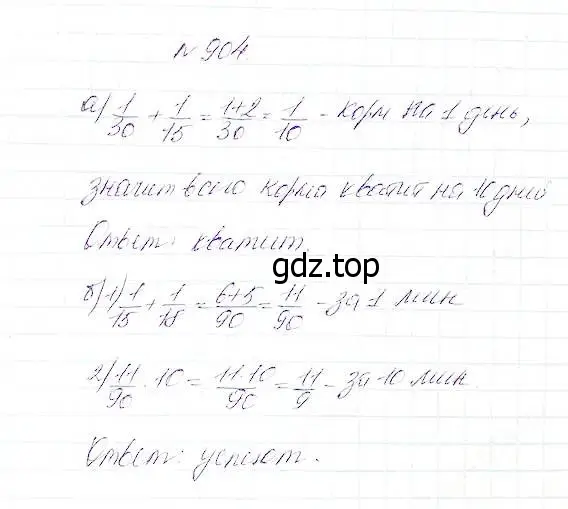 № 904
а) 1/30 + 1/15 = 1+2/30 = 1/10 - корм на 1 день,
значит всего корма хватит на 10 дней
Ответ: хватит.
gdz.top
б) 1) 1/15 + 1/18 = 6+5/90 = 11/90 - за 1 мин
2) 11/90 · 10 = 11·10/90 = 11/9 - за 10 мин.
Ответ: успеют.